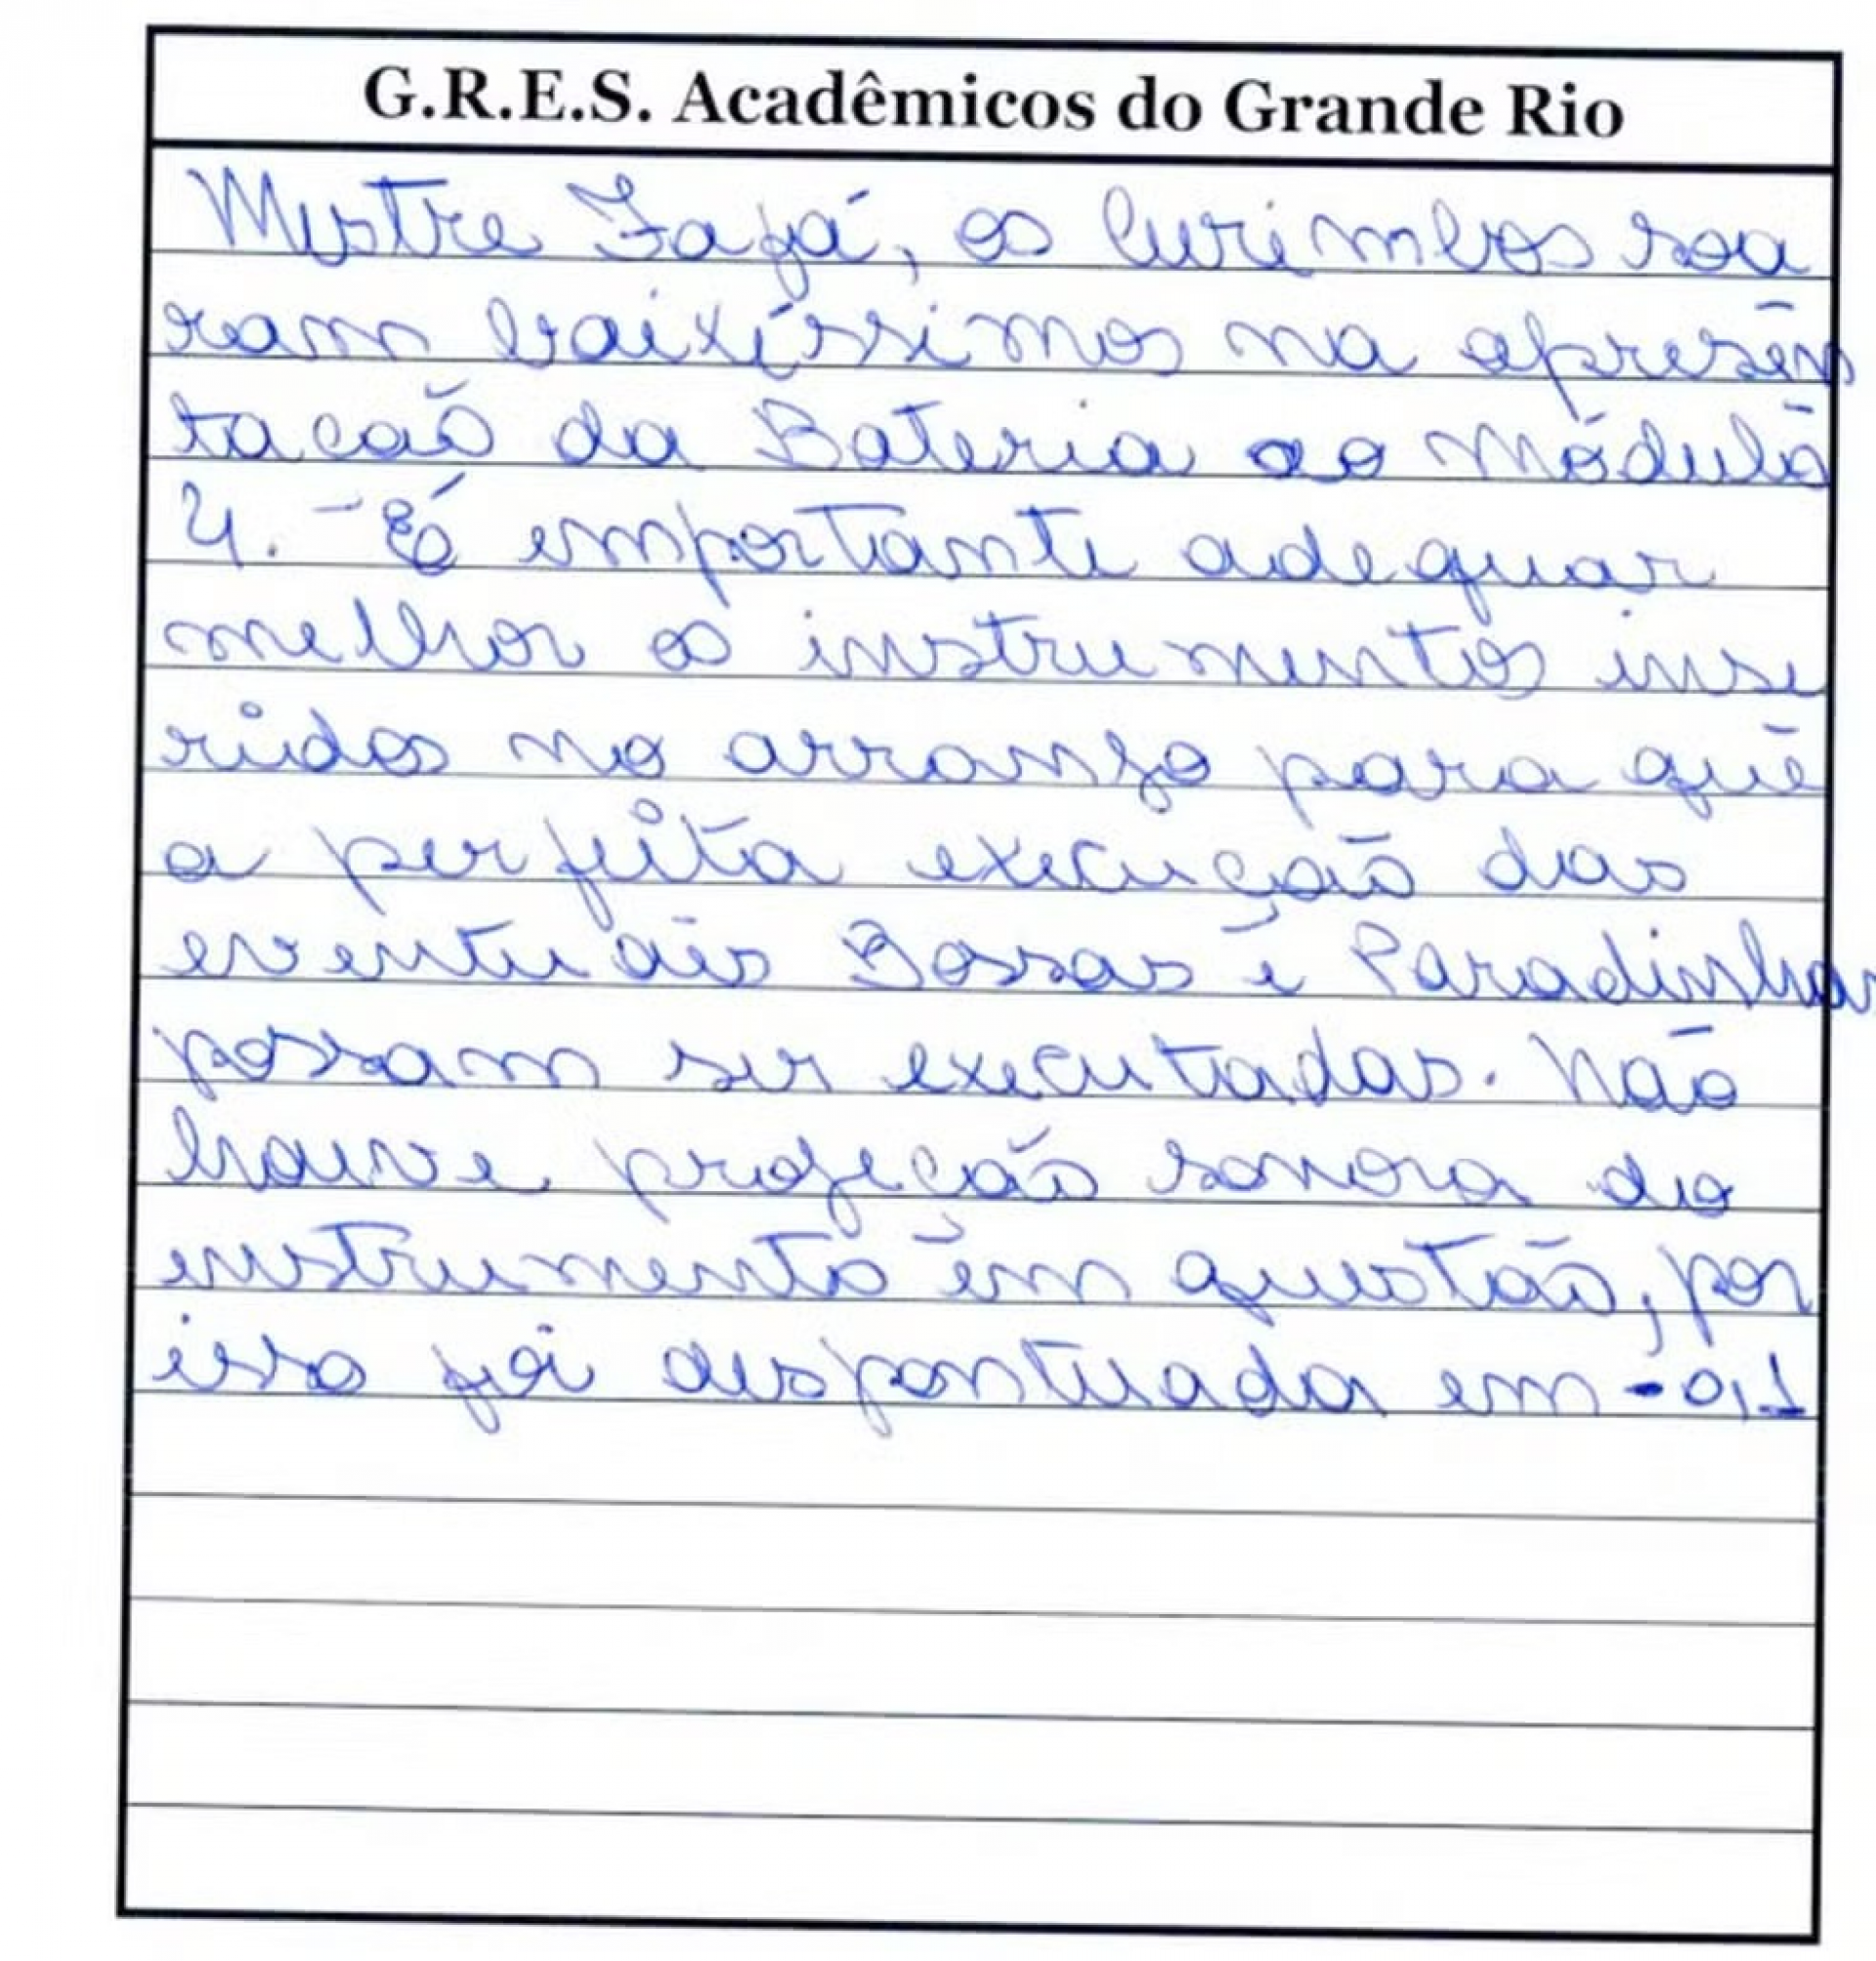 G.R.E.S. Acadêmicos do Grande Rio
Mestre Fafá, os curimbos soa
ram baixíssimos na apresen
tacaõ da Bateria ao Módulo
4. - É importante adequar
melhor os instrumentos inse
ridos no arranjo para que
a perfeita execuçaõ das
eventuais Bossas e Paradinhas
possam ser executadas. Não
houve projeção sonora do
instrumento em questão, por
isso foi despontuada em -0,1